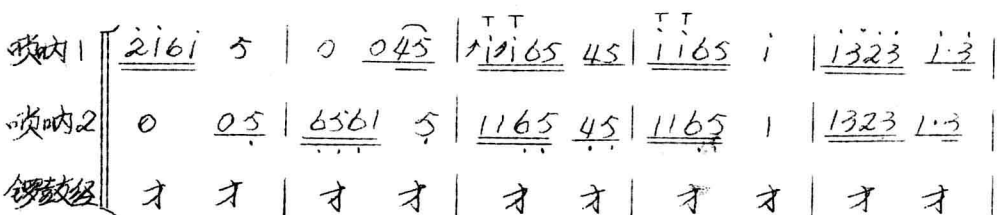 T T T T
唢呐1 2̇i̇6i̇ 5 | 0 045 | i̇i̇65 45 | i̇i̇65 i̇ | i̇3̇2̇3̇ i̇·3̇ |
唢呐2 0 05̣ | 6̣5̣6̣1 5̣ | 116̣5̣ 4̣5̣ | 116̣5̣ 1 | 1323 1·3 |
锣鼓经 才 才 | 才 才 | 才 才 | 才 才 | 才 才 |